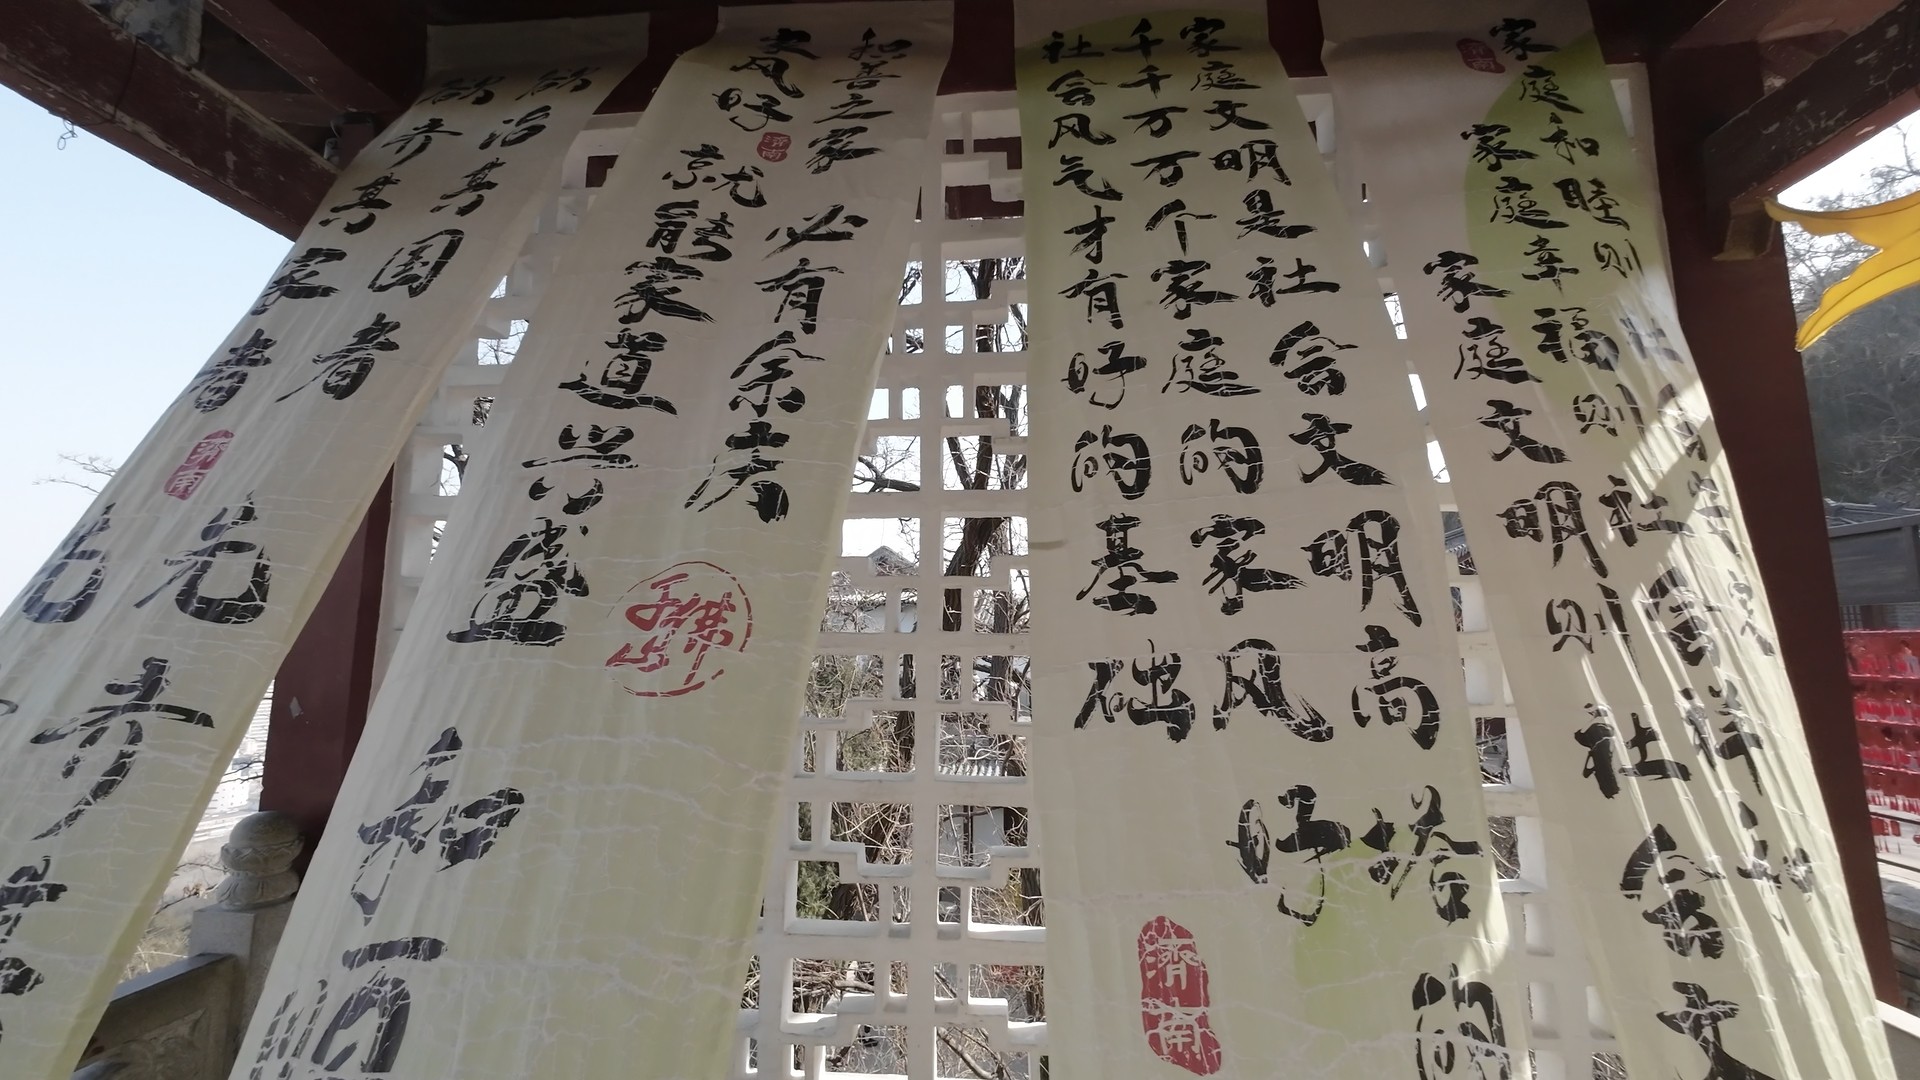 家庭和睦则社会
家庭幸福则社会祥和
家庭文明则社会文
濟南
家庭文明是社会文明高塔的
千千万万个家庭的家风好
社会风气才有好的基础
濟南
和善之家必有余庆
家风好就能家道兴盛和顺
濟南
欲治其国者先齐其
欲齐其家者先
濟南